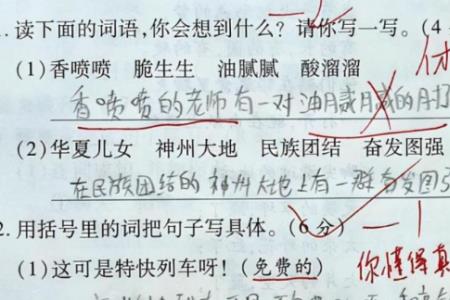 1.读下面的词语,你会想到什么?请你写一写。(4
(1)香喷喷 脆生生 油腻腻 酸溜溜
香喷喷的老师有一对油月贰月贰的月
(2)华夏儿女 神州大地 民族团结 奋发图强
在民族团结的神州大地上有一群奋发图
2.用括号里的词把句子写具体。(6分) —1
(1)这可是特快列车呀!(免费的) 你懂得真